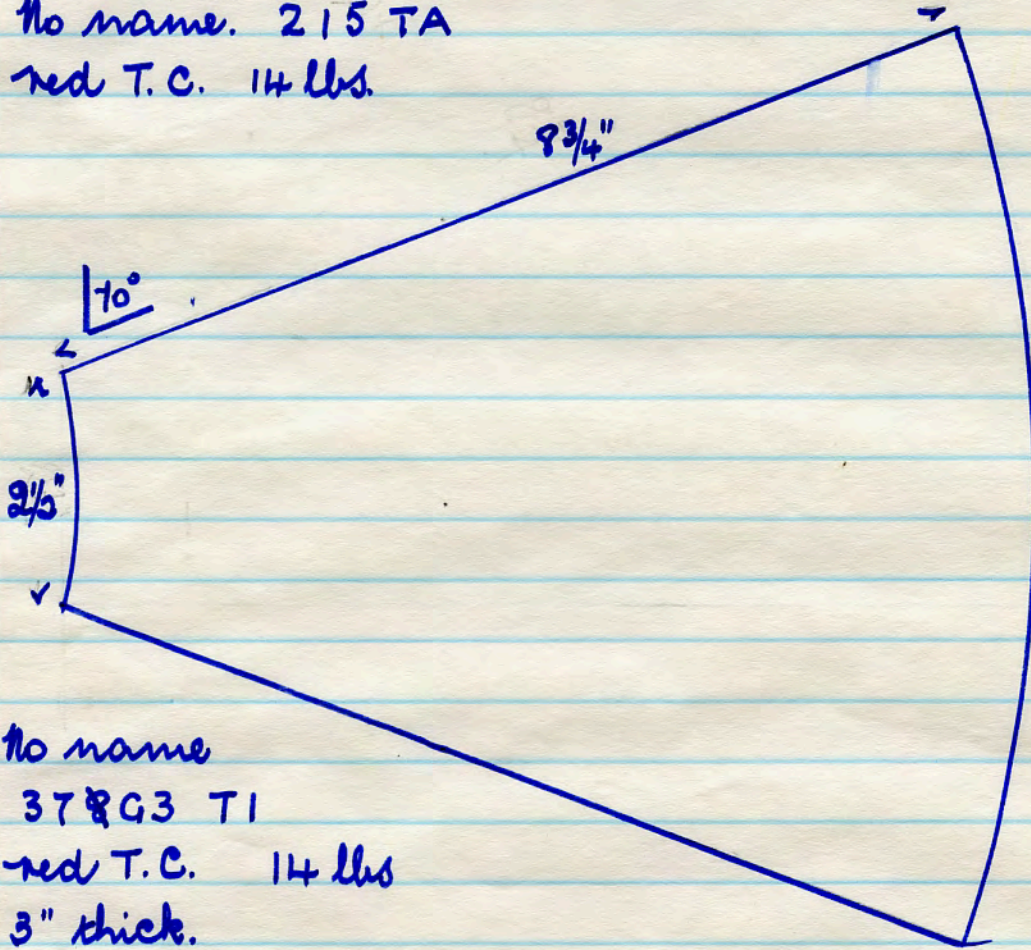 No name. 215 TA
red T.C. 14 lbs.
8 3/4"
70°
2 1/2"
No name
378G3 T1
red T.C. 14 lbs
3" thick.